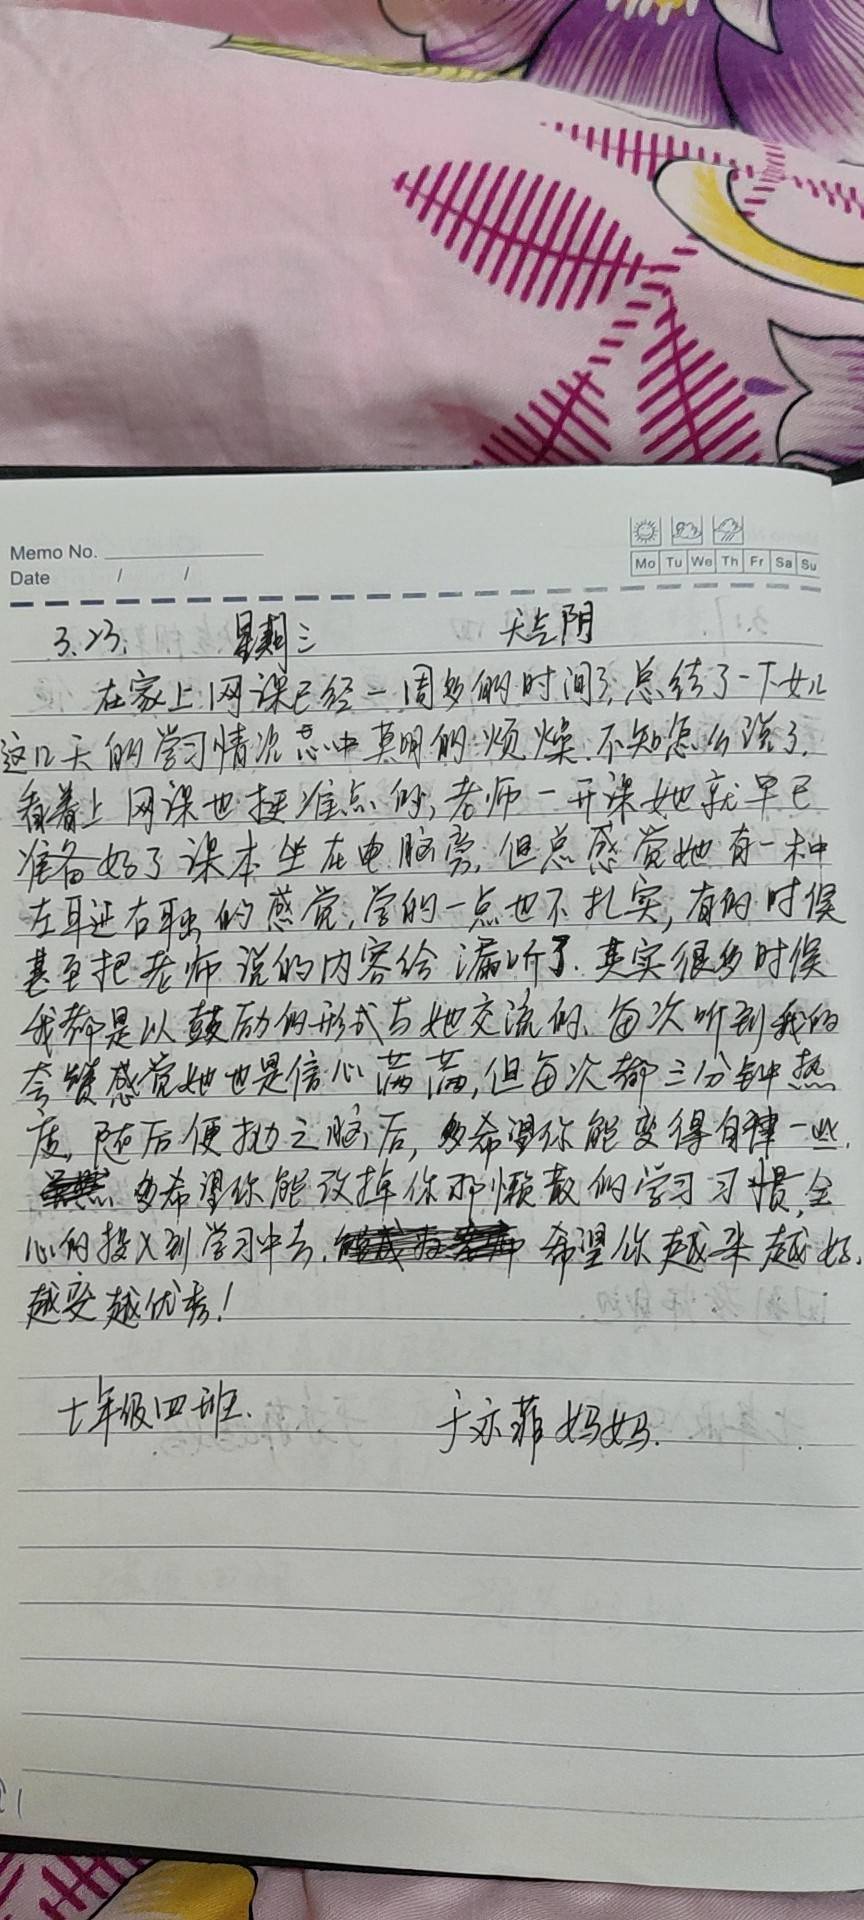 Memo No.
Date / /
Mo Tu We Th Fr Sa Su
3.23. 星期三 天气阴
在家上网课已经一周多的时间了,总结了一下女儿
这几天的学习情况,心中莫明的烦燥.不知怎么说了.
看着上网课也挺准点的,老师一开课她就早已
准备好了课本坐在电脑旁,但总感觉她有一种
左耳进右耳出的感觉,学的一点也不扎实,有的时候
甚至把老师说的内容给漏听了.其实很多时候
我都是以鼓励的形式与她交流的.每次听到我的
夸赞感觉她也是信心满满,但每次都三分钟热
度,随后便抛之脑后,多希望你能变得自律一些.
多希望你能改掉你那懒散的学习习惯,全
心的投入到学习中去.希望你越来越好.
越变越优秀!
七年级四班. 于亦菲妈妈.